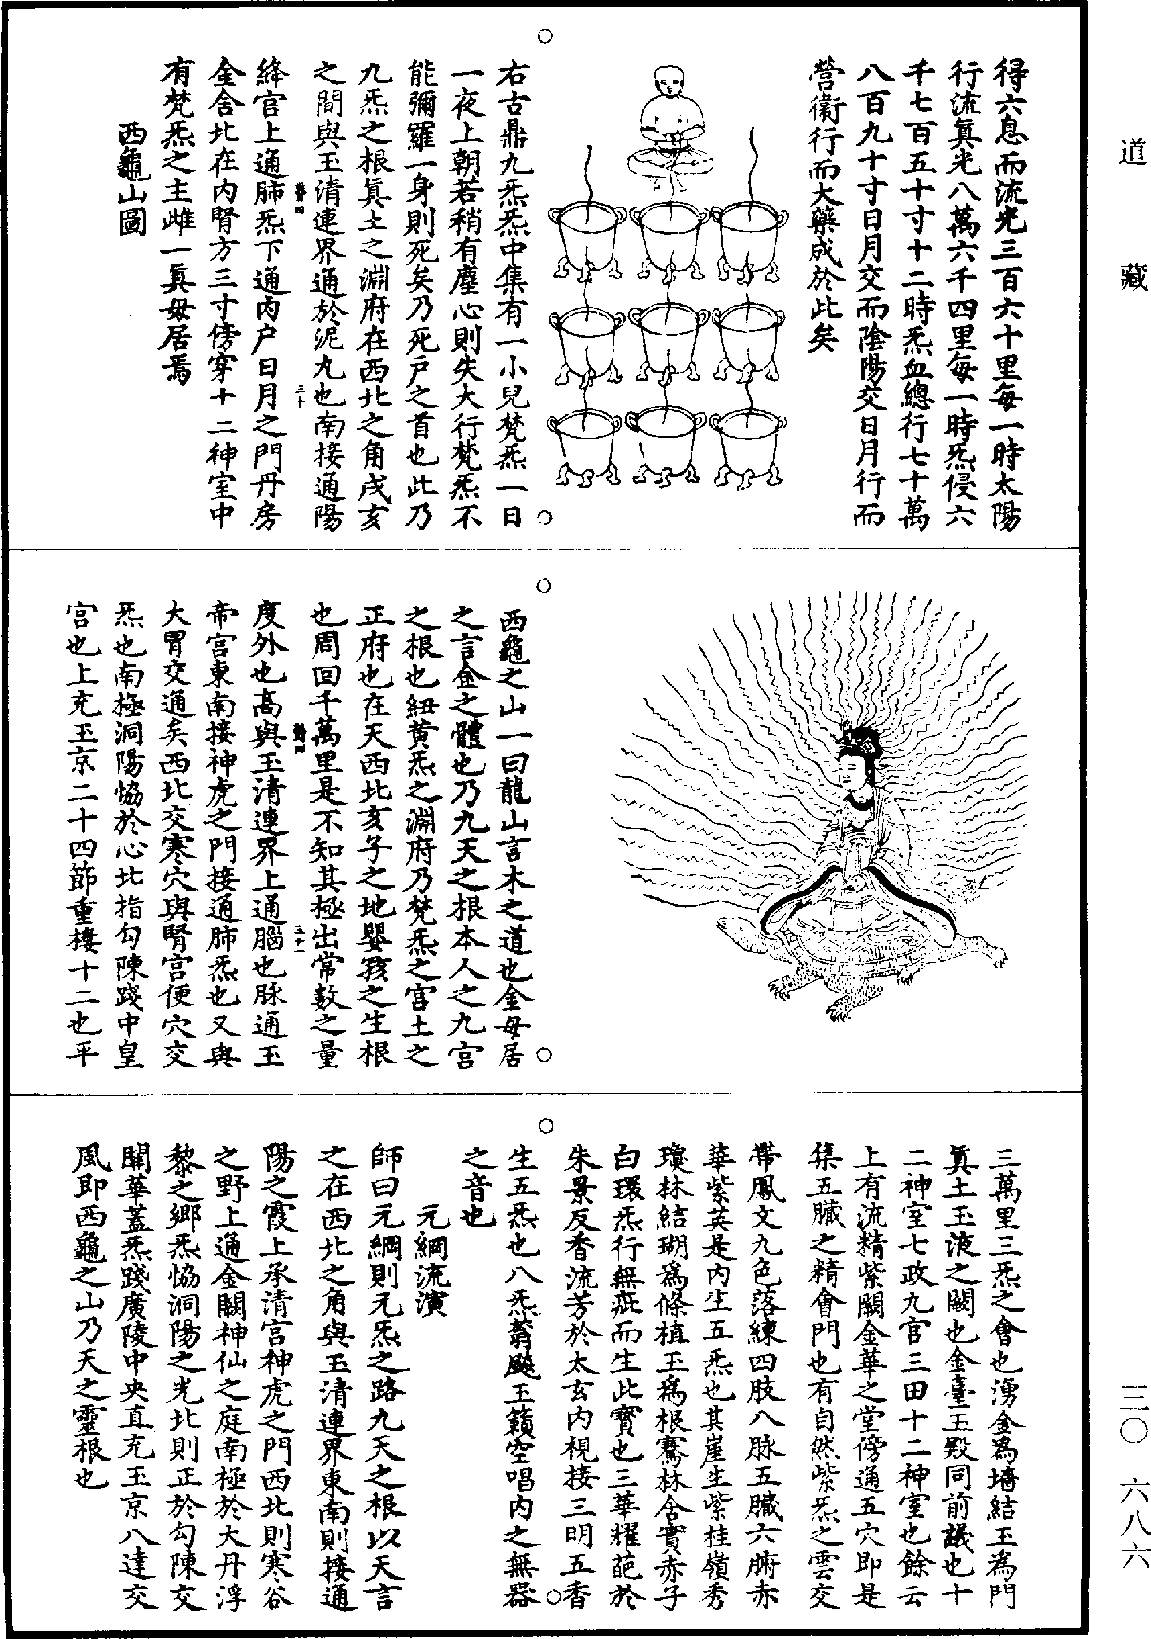 道藏
三〇 六八六
得六息而流光三百六十里每一時太陽
行流真光八萬六千四里每一時炁侵六
千七百五十寸十二時炁血總行七十萬
八百九十寸日月交而陰陽交日月行而
營衛行而大藥成於此矣
右古鼎九炁炁中集有一小兒梵炁一日
一夜上朝若稍有塵心則失大行梵炁不
能彌羅一身則死矣乃死戶之首也此乃
九炁之根真土之淵府在西北之角戌亥
之間與玉清連界通於泥丸也南接通陽
絳宮上通肺炁下通內戶日月之門丹房
金舍北在內腎方三寸傍穿十二神室中
有梵炁之主雌一真母居焉
西龜山圖
西龜之山一曰龍山言木之道也金母居
之言金之體也乃九天之根本人之九宮
之根也紐黃炁之淵府乃梵炁之宮土之
正府也在天西北亥子之地嬰孩之生根
也周回千萬里是不知其極出常數之量
度外也高與玉清連界上通腦也脉通玉
帝宮東南接神虎之門接通肺炁也又與
大胃交通矣西北交寒穴與腎宮便穴交
炁也南極洞陽恊於心北指勾陳踐中皇
宮也上充玉京二十四節重樓十二也平
三萬里三炁之會也湧金為墻結玉為門
真土玉液之闕也金臺玉殿同前議也十
二神室七政九宮三田十二神室也餘云
上有流精紫闕金華之堂傍通五穴即是
集五臟之精會門也有自然紫炁之雲交
帶鳳文九色落練四肢八脉五臟六腑赤
華紫英是內生五炁也其崖生紫桂嶺秀
瓊林結瑚為條植玉為根騫林含實赤子
白環炁行無疵而生此寶也三華耀葩於
朱景反香流芳於太玄內視接三明五香
生五炁也八炁蓊飈玉籟空唱內之無器
之音也
元綱流演
師曰元綱則元炁之路九天之根以天言
之在西北之角與玉清連界東南則接通
陽之霞上承清宮神虎之門西北則寒谷
之野上通金闕神仙之庭南極於大丹浮
黎之鄉炁恊洞陽之光北則正於勾陳交
關華蓋炁踐廣陵中央直充玉京八達交
風即西龜之山乃天之靈根也